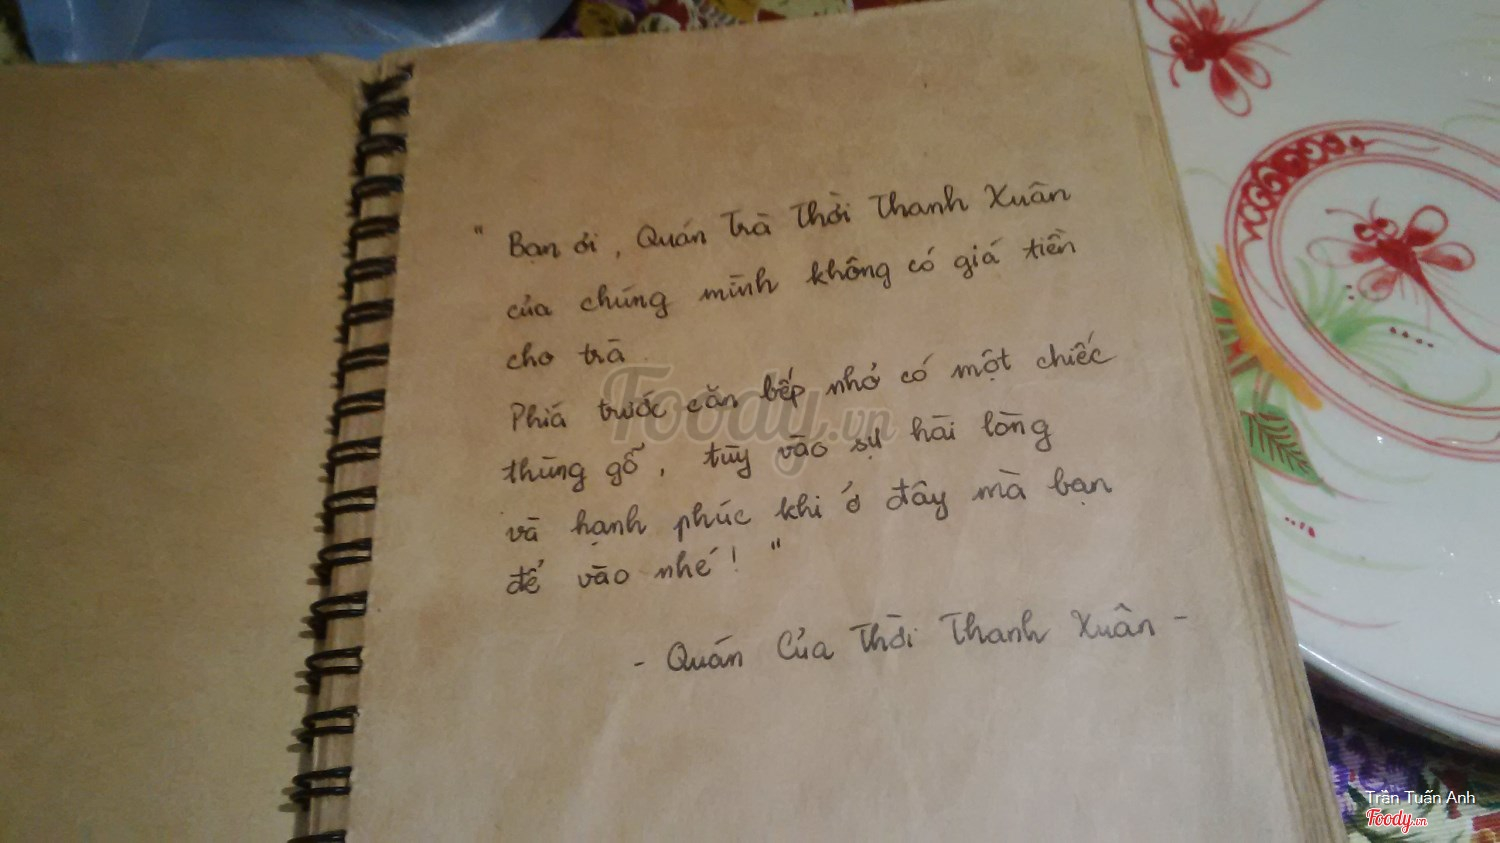 " Bạn ơi, Quán Trà Thời Thanh Xuân
của chúng mình không có giá tiền
cho trà.
Phía trước căn bếp nhỏ có một chiếc
thùng gỗ, tùy vào sự hài lòng
và hạnh phúc khi ở đây mà bạn
để vào nhé! "
- Quán Của Thời Thanh Xuân -
Foody.vn
Trần Tuấn Anh
Foody.vn